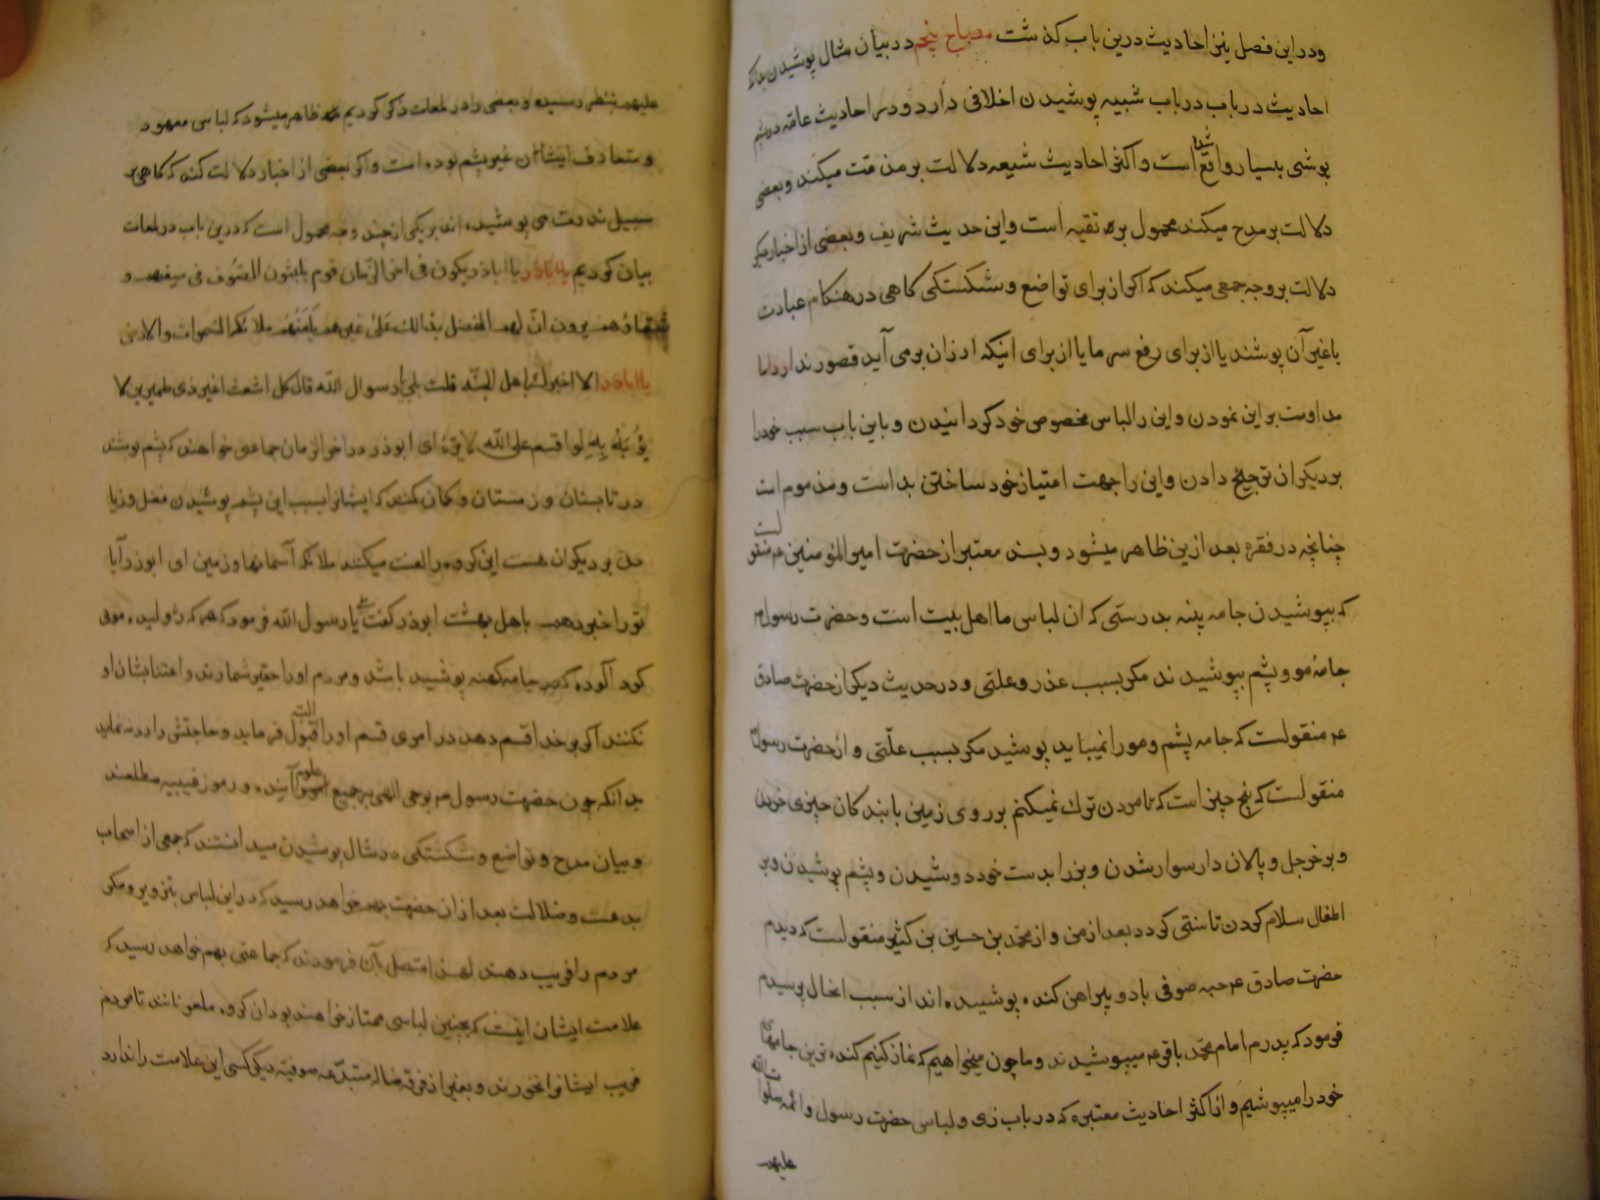 ودر این فصل نیز احادیث درین باب کذشت مصباح پنجم در بیان مثال پوشیدن بدانکه
احادیث در باب در باب شبیه پوشیدن اخلافی دارد و در احادیث عامه در پشم
پوشی بسیار واقع شده است و اکثر احادیث شیعه دلالت بر مذمت میکند و بعضی
دلالت بر مدح میکند محمول بر تقیه است و این حدیث شریف و بعضی از اخبار دیگر
دلالت بر وجه جمعی میکند که اکر از برای تواضع و شکستکی کاهی در هنکام عبادت
یا غیر آن پوشند یا از برای رفع سرما یا از برای اینکه ارزان برمی آید قصور ندارد اما
مداومت بر این نمودن و این را لباس مخصوص خود کردانیدن و باین باب سبب خود را
بر دیکران ترجیح دادن و این را جهت امتیاز خود ساختن بد است و مذموم است
چنانچه در فقره بعد ازین ظاهر میشود و بسند معتبر از حضرت امیر المؤمنین ع منقولست
که بپوشیدن جامه پنبه بدرستی که ان لباس ما اهل بیت است و حضرت رسول ص
جامهٔ مو و پشم بپوشیدند مکر بسبب عذر و علتی و در حدیث دیکر از حضرت صادق
ع منقولست که جامه پشم و مو را نمیباید پوشید مکر بسبب علّتی و از حضرت رسول ص
منقولست که پنج چیز است که تا مردن ترک نمیکنم بر روی زمین با بندکان چیزی خوردن
و بر خر جل و پالان دار سوار شدن و بز را بدست خود دوشیدن و پشم پوشیدن و بر
اطفال سلام کردن تا سنتی کردد بعد از من و از محمد بن حسین بن کثیر منقولست که دیدم
حضرت صادق ع جبه صوفی با دو پیراهن کنده پوشیده اند از سبب انحال پرسیدم
فرمود که پدرم امام محمّد باقر ع میپوشیدند و ما چون میخواهیم که نماز کنیم کنده ترین جامهای
خود را میپوشیم و از اکثر احادیث معتبره که در باب زی و لباس حضرت رسول و ائمه صلوات الله
علیهم
علیهم بنظر رسیده و بعضی را در لمعات ذکر کردیم ظاهر میشود که لباس معهود
و متعارف ایشان غیر پشم بوده است و اکر بعضی از اخبار دلالت کند که کاهی بر
سبیل ندرت می پوشیده اند بر یکی از چند وجه محمول است که درین باب در لمعات
بیان کردیم یا اباذر یا اباذر یکون فی اخر الزّمان قوم یلبسون الصّوف فی صیفهم و
شتائهم یرون انّ لهم الفضل بذالک علی غیرهم یلعنهم ملائکة السموات والارض
یا اباذر الا اخبرک باهل الجنّه قلت بلی یا رسول الله قال کل اشعث اغبر ذی طمرین لا
یؤبه به لو اقسم علی الله لابرّه ای ابوذر در اخر الزمان جماعتی خواهند که پشم پوشند
در تابستان و زمستان و کمان کنند که ایشانرا بسبب این پشم پوشیدن فضل و زیا
دتی بر دیکران هست این کروه را لعنت میکنند ملائکه آسمانها و زمین ای ابوذر آیا
تو را خبر دهم باهل بهشت ابوذر کفت بلی یا رسول الله فرمود که هر که ژولیده موی
کرد آلوده که جامه کهنه پوشیده باشد و مردم او را حقیر شمارند و اعتنا بشان او
نکنند اکر بر خدا قسم دهد در امری قسم او را البته قبول فرماید و حاجتش را رد ننماید
بدانکه چون حضرت رسول ص بوحی الهی بر جمیع علوم آینده و رموز غیبیه مطلعند
و بیان مدح و تواضع و شکستکی در شال پوشیدن میدانستند که جمعی از اصحاب
بدعت و ضلالت بعد از ان حضرت بهم خواهد رسید که در این لباس بتزویر و مکر
مردم را فریب دهند لهذا متصل بآن فرمودند که جماعتی بهم خواهد رسید که
علامت ایشان اینست که بچنین لباسی ممتاز خواهند بود ان کروه ملعونانند تا مردم
فریب ایشانرا نخورند و بغیر از فرقه ضاله مبتدعه صوفیّه دیکر کسی این علامت را ندارد